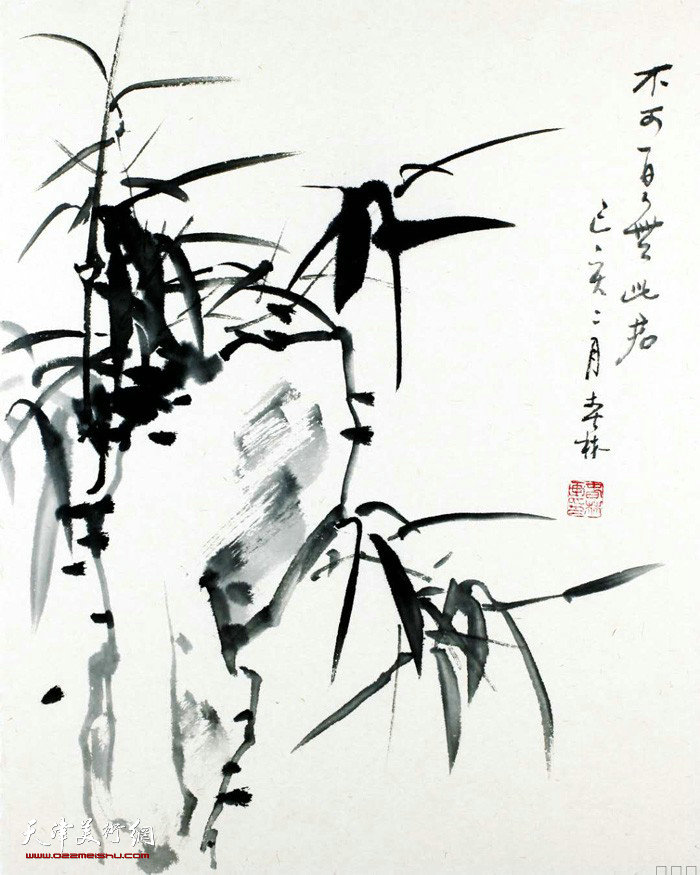 不可一日無此君
己亥二月
天津美術網
www.022meishu.com